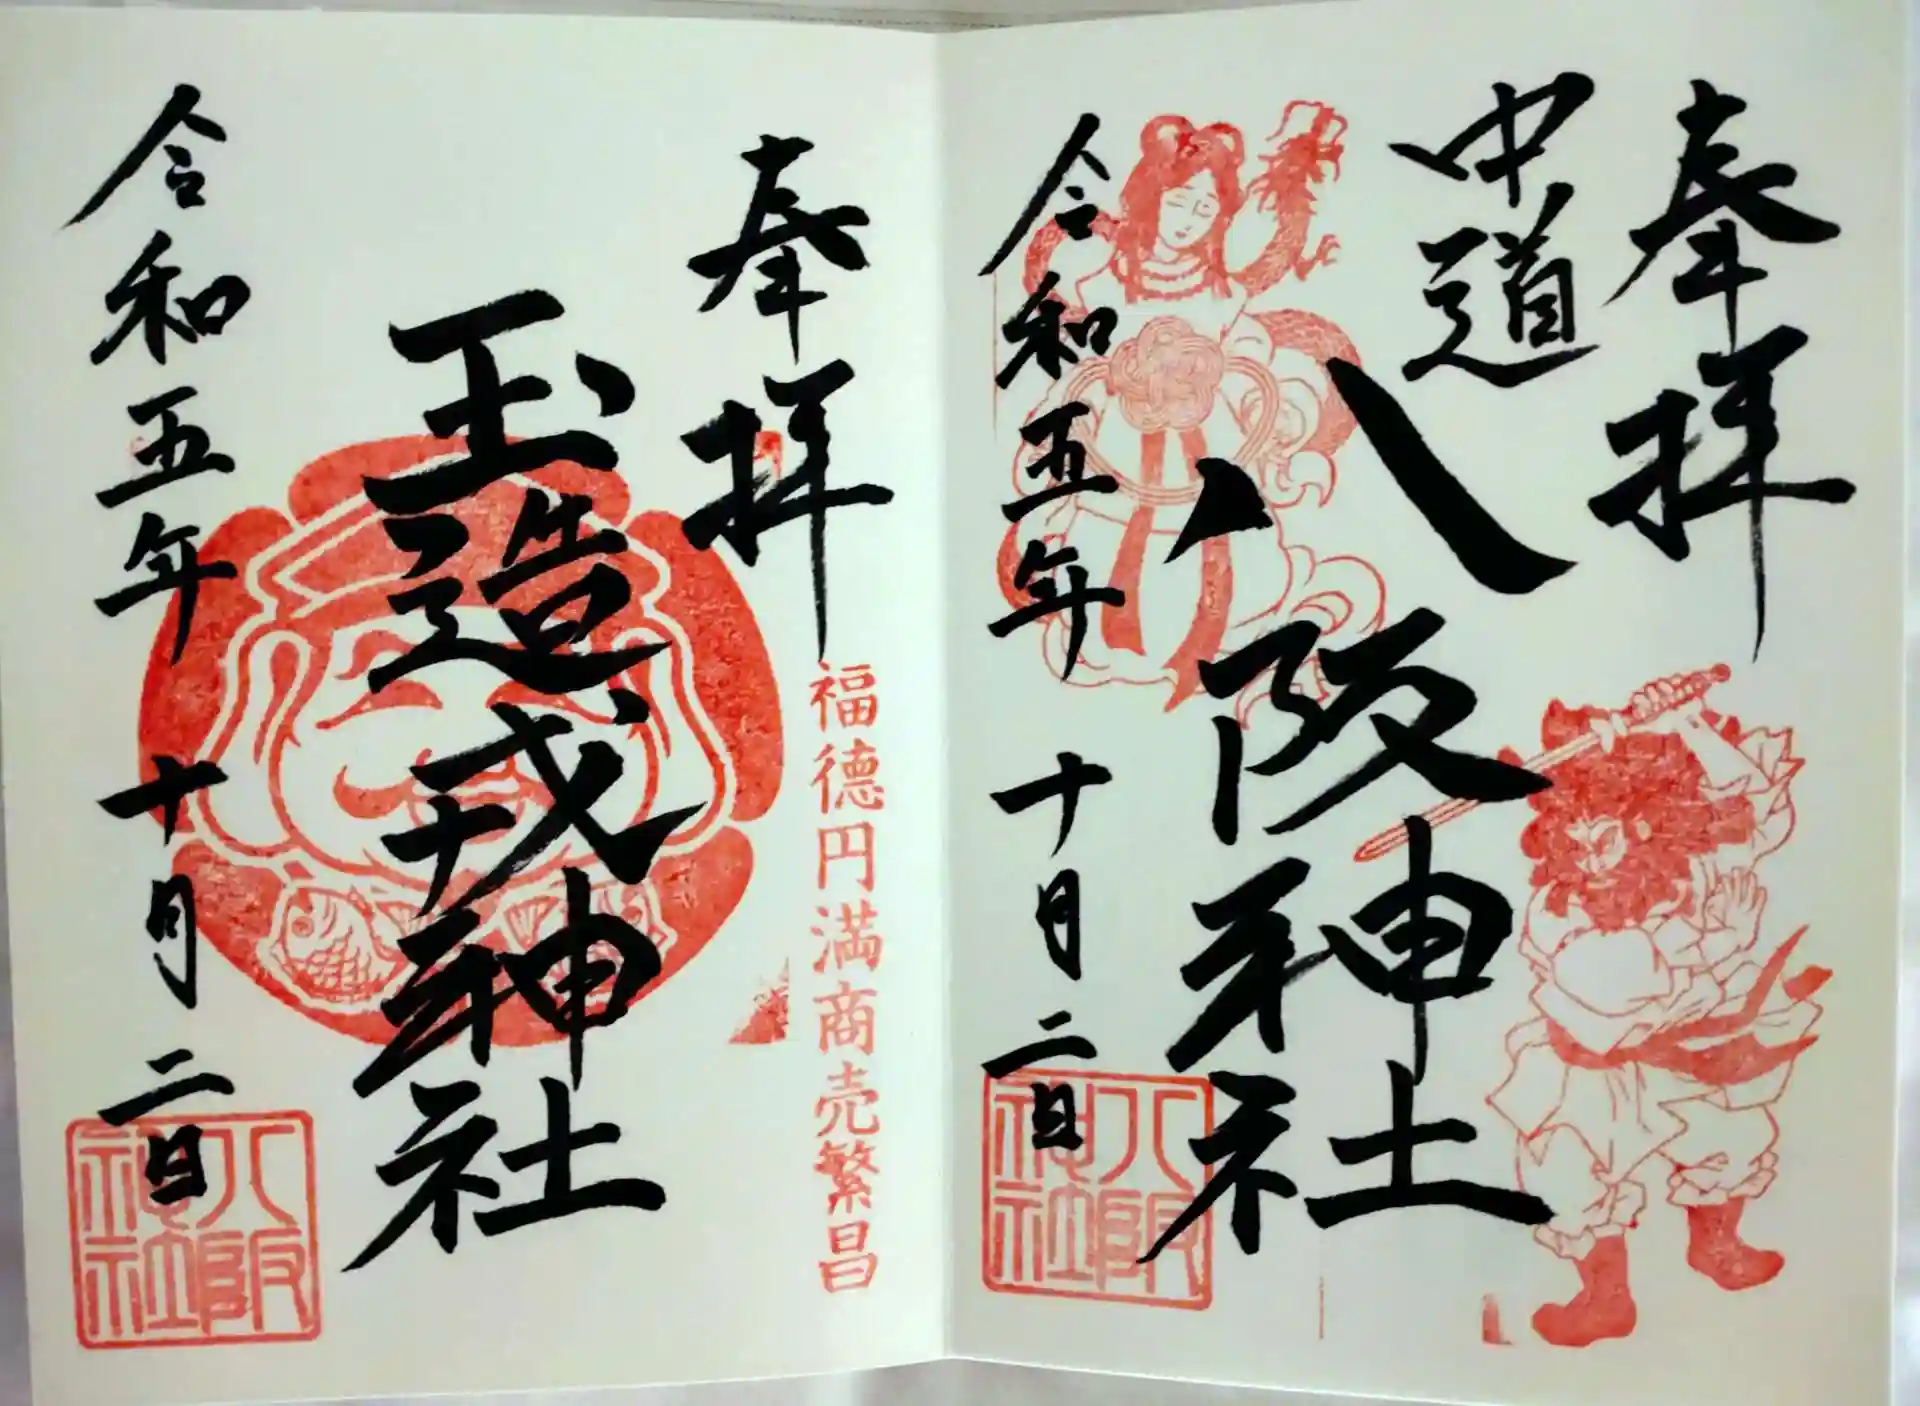 奉拝
中道
八阪神社
令和五年 十月二日
八阪神社
奉拝
福徳円満商売繁昌
玉造戎神社
令和五年 十月二日
八阪神社